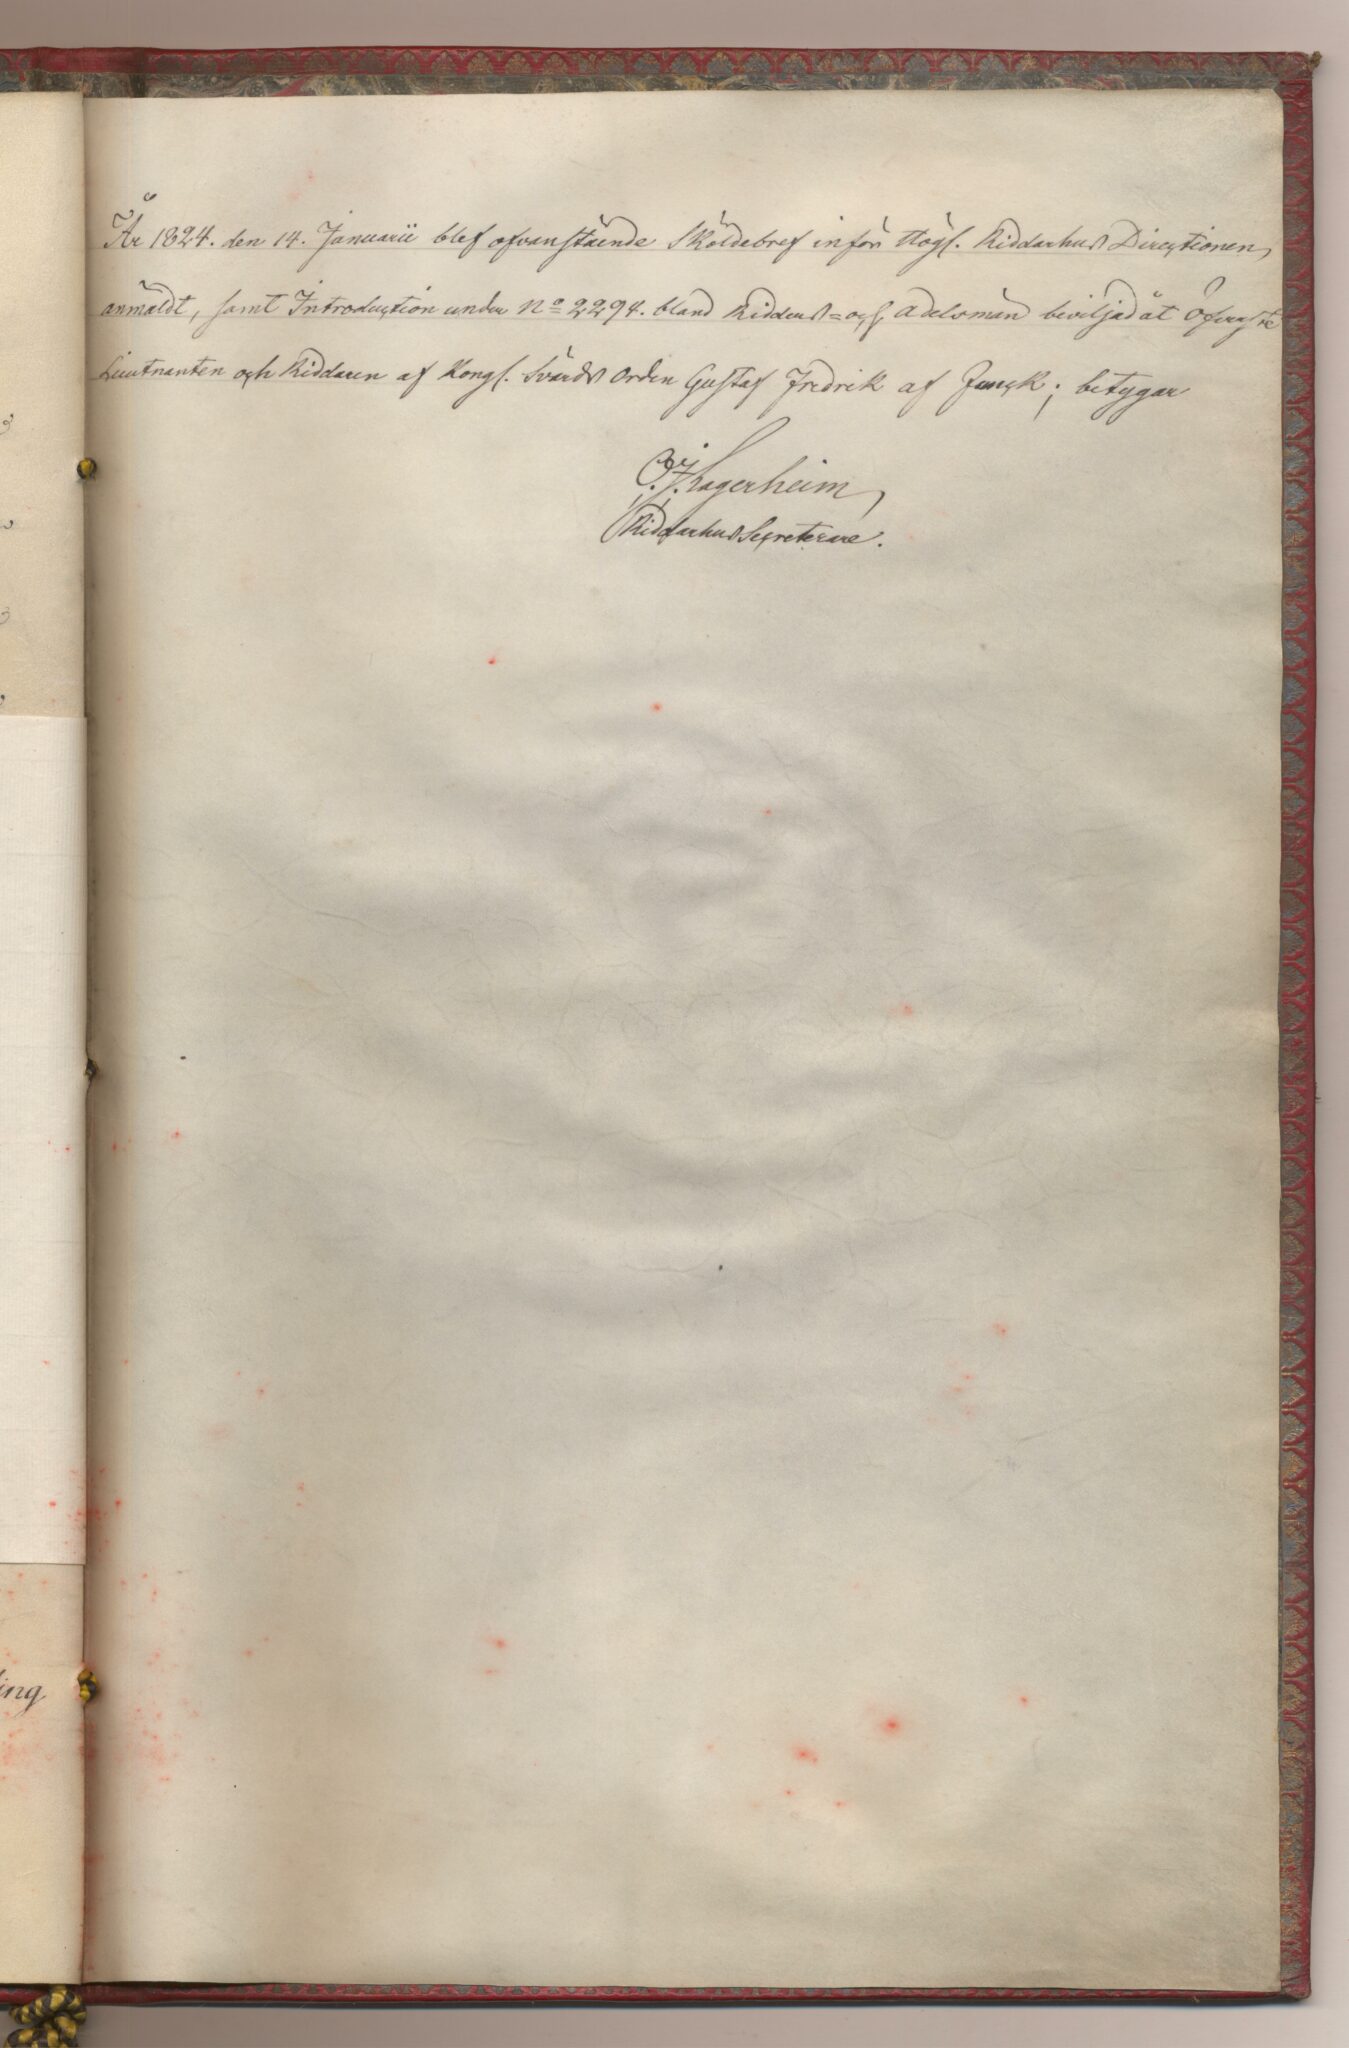 År 1824. den 14. Januarii blef ofvanstående Sköldebref inför Högl. Riddarhus Directionen,
anmäldt, samt Introduction under No 2294. bland Ridders= och Adelsmän beviljad åt Öfverste
Lieutnanten och Riddaren af Kongl. Svärds Orden Gustaf Fredrik af Funck; betygar
C. J. Lagerheim,
Riddarhus Secreterare.
ing